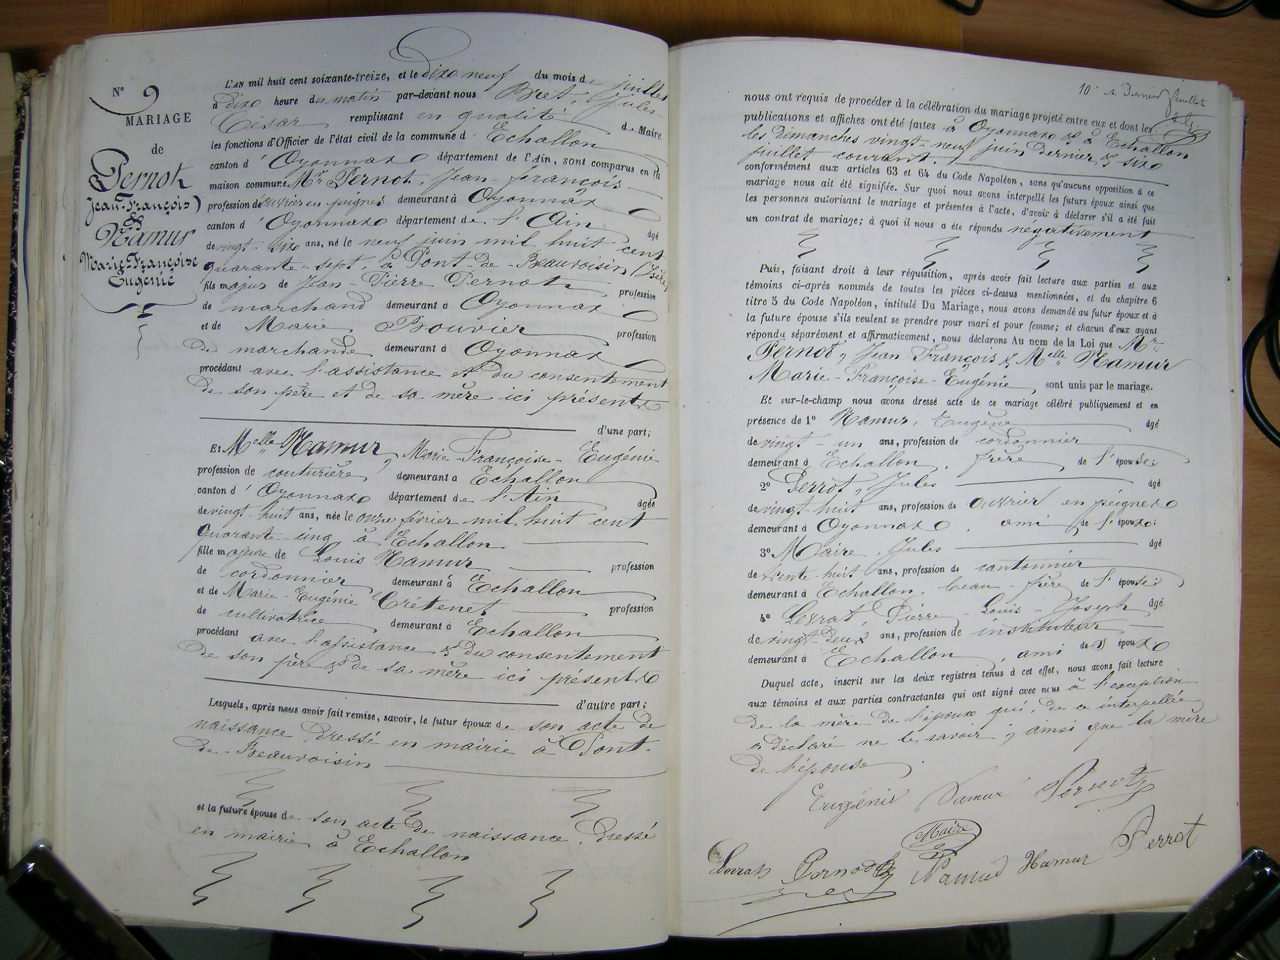 N° 9
MARIAGE
de
Pernot
Jean-François
&
Hamur
Marie-Françoise
Eugénie
L'AN mil huit cent soixante-treize, et le dixo neuf du mois de juillet
à dixo heure du matin par-devant nous Bret, Jules-
César remplissant en qualité de Maire
les fonctions d'Officier de l'état civil de la commune d' Echallon
canton d' Oyonnaxo département de l'Ain, sont comparus en la
maison commune Mr Pernot, Jean-François
profession de ouvrier en peignes demeurant à Oyonnaxo
canton d' Oyonnaxo département de l'Ain âgé
de vingt-sixo ans, né le neuf juin mil huit cent
quarante-sept, à Pont-de-Beauvoisin (Isère)
fils majus de Jean-Pierre Pernot profession
de marchand demeurant à Oyonnaxo
et de Marie Bouvier profession
de marchande demeurant à Oyonnaxo
procédant avec l'assistance et du consentement
de son père et de sa mère ici présents
d'une part;
Et Melle Hamur, Marie-Françoise-Eugénie
profession de couturière demeurant à Echallon
canton d' Oyonnaxo département de l'Ain âgée
de vingt-huit ans, née le onze février mil huit cent
quarante-cinq à Echallon
fille majeure de Louis Hamur profession
de cordonnier demeurant à Echallon
et de Marie-Eugénie Crétenet profession
de cultivatrice demeurant à Echallon
procédant avec l'assistance & du consentement
de son père & de sa mère ici présents
d'autre part;
Lesquels, après nous avoir fait remise, savoir, le futur époux de son acte de
naissance dressé en mairie à Pont-
de-Beauvoisin
et la future épouse de son acte de naissance dressé
en mairie à Echallon
10e & Dernier feuillet
nous ont requis de procéder à la célébration du mariage projeté entre eux et dont les
publications et affiches ont été faites à Oyonnaxo & à Echallon
les dimanches vingt-neuf juin dernier & sixo
juillet courant.
conformément aux articles 63 et 64 du Code Napoléon, sans qu'aucune opposition à ce
mariage nous ait été signifiée. Sur quoi nous avons interpellé les futurs époux ainsi que
les personnes autorisant le mariage et présentes à l'acte, d'avoir à déclarer s'il a été fait
un contrat de mariage; à quoi il nous a été répondu négativement
Puis, faisant droit à leur réquisition, après avoir fait lecture aux parties et aux
témoins ci-après nommés de toutes les pièces ci-dessus mentionnées, et du chapitre 6
titre 5 du Code Napoléon, intitulé Du Mariage, nous avons demandé au futur époux et à
la future épouse s'ils veulent se prendre pour mari et pour femme; et chacun d'eux ayant
répondu séparément et affirmativement, nous déclarons Au nom de la Loi que Mr
Pernot, Jean François & Melle Hamur
Marie-Françoise-Eugénie, sont unis par le mariage.
Et sur-le-champ nous avons dressé acte de ce mariage célébré publiquement et en
présence de 1° Hamur, Eugène âgé
de vingt-un ans, profession de cordonnier
demeurant à Echallon, frère de l'épouse;
2° Perrot, Jules âgé
de vingt-huit ans, profession de ouvrier en peignes
demeurant à Oyonnaxo, ami de l'épouxo;
3° Maire, Jules âgé
de trente-huit ans, profession de cantonnier
demeurant à Echallon, beau-frère de l'épouse;
4° Levrat, Pierre-Louis-Joseph âgé
de vingt-deux ans, profession de instituteur
demeurant à Echallon, ami de l'épouxo
Duquel acte, inscrit sur les deux registres tenus à cet effet, nous avons fait lecture
aux témoins et aux parties contractantes qui ont signé avec nous à l'exception
de la mère de l'époux qui, de ce interpellée
a déclaré ne le savoir; ainsi que la mère
de l'épouse
Eugénie Hamur Pernot
Maire
Levrat Pernot Hamur Hamur Perrot